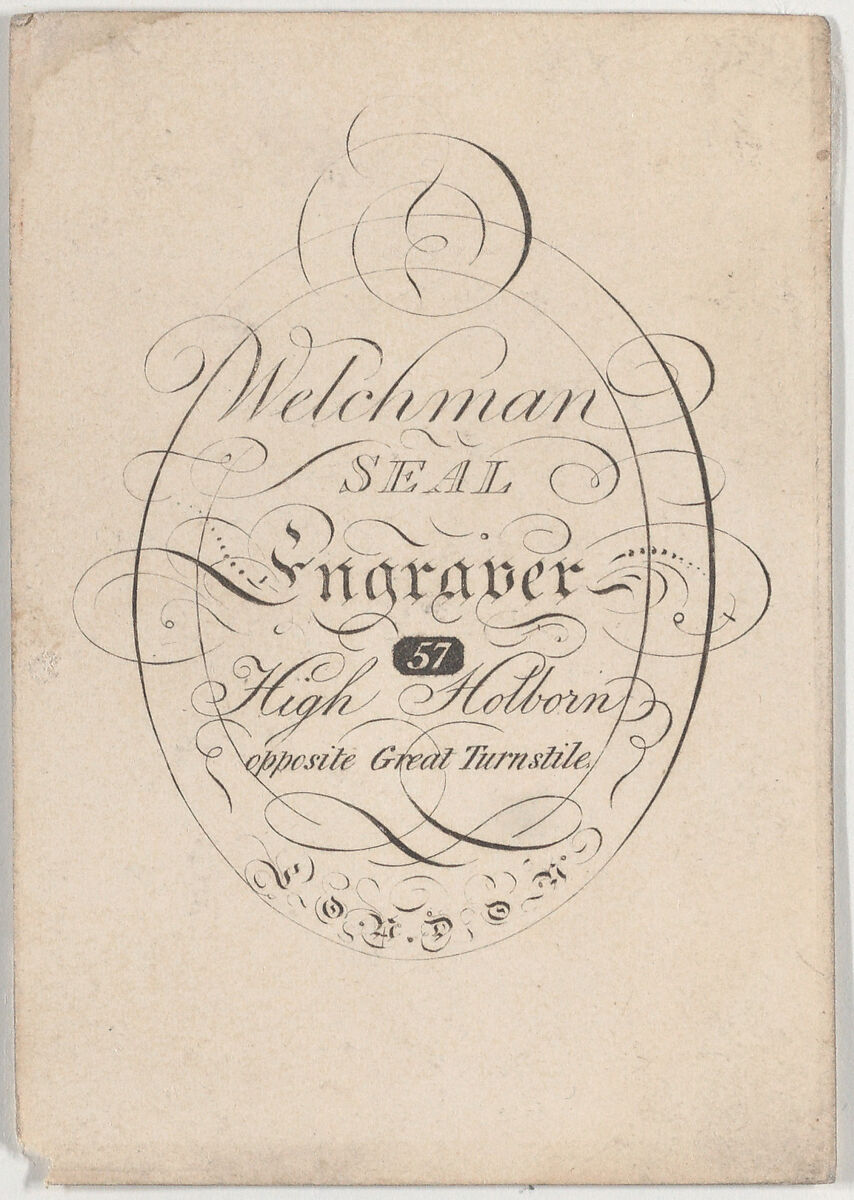 Welchman
SEAL
Engraver
57
High Holborn
opposite Great Turnstile.
L.O.N.D.O.N.